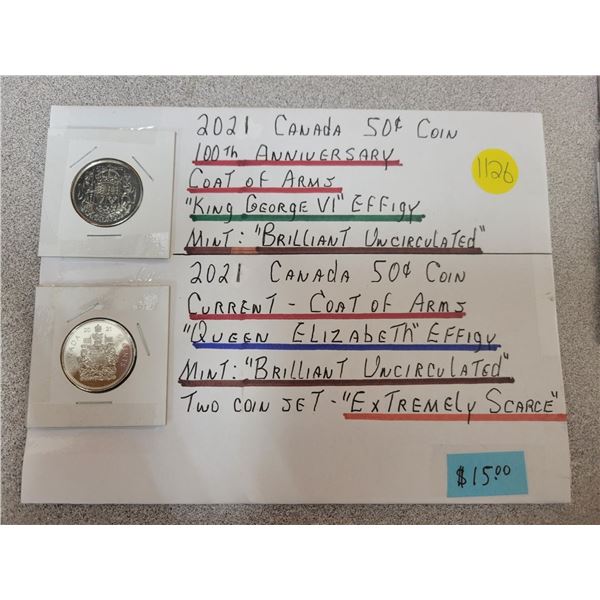 2021 CANADA 50¢ COIN
100TH ANNIVERSARY
COAT OF ARMS
"KING GEORGE VI" EFFIGY
MINT: "BRILLIANT UNCIRCULATED"
1126
2021 CANADA 50¢ COIN
CURRENT - COAT OF ARMS
"QUEEN ELIZABETH" EFFIGY
MINT: "BRILLIANT UNCIRCULATED"
TWO COIN SET - "EXTREMELY SCARCE"
$15.00
CANADA 20 21